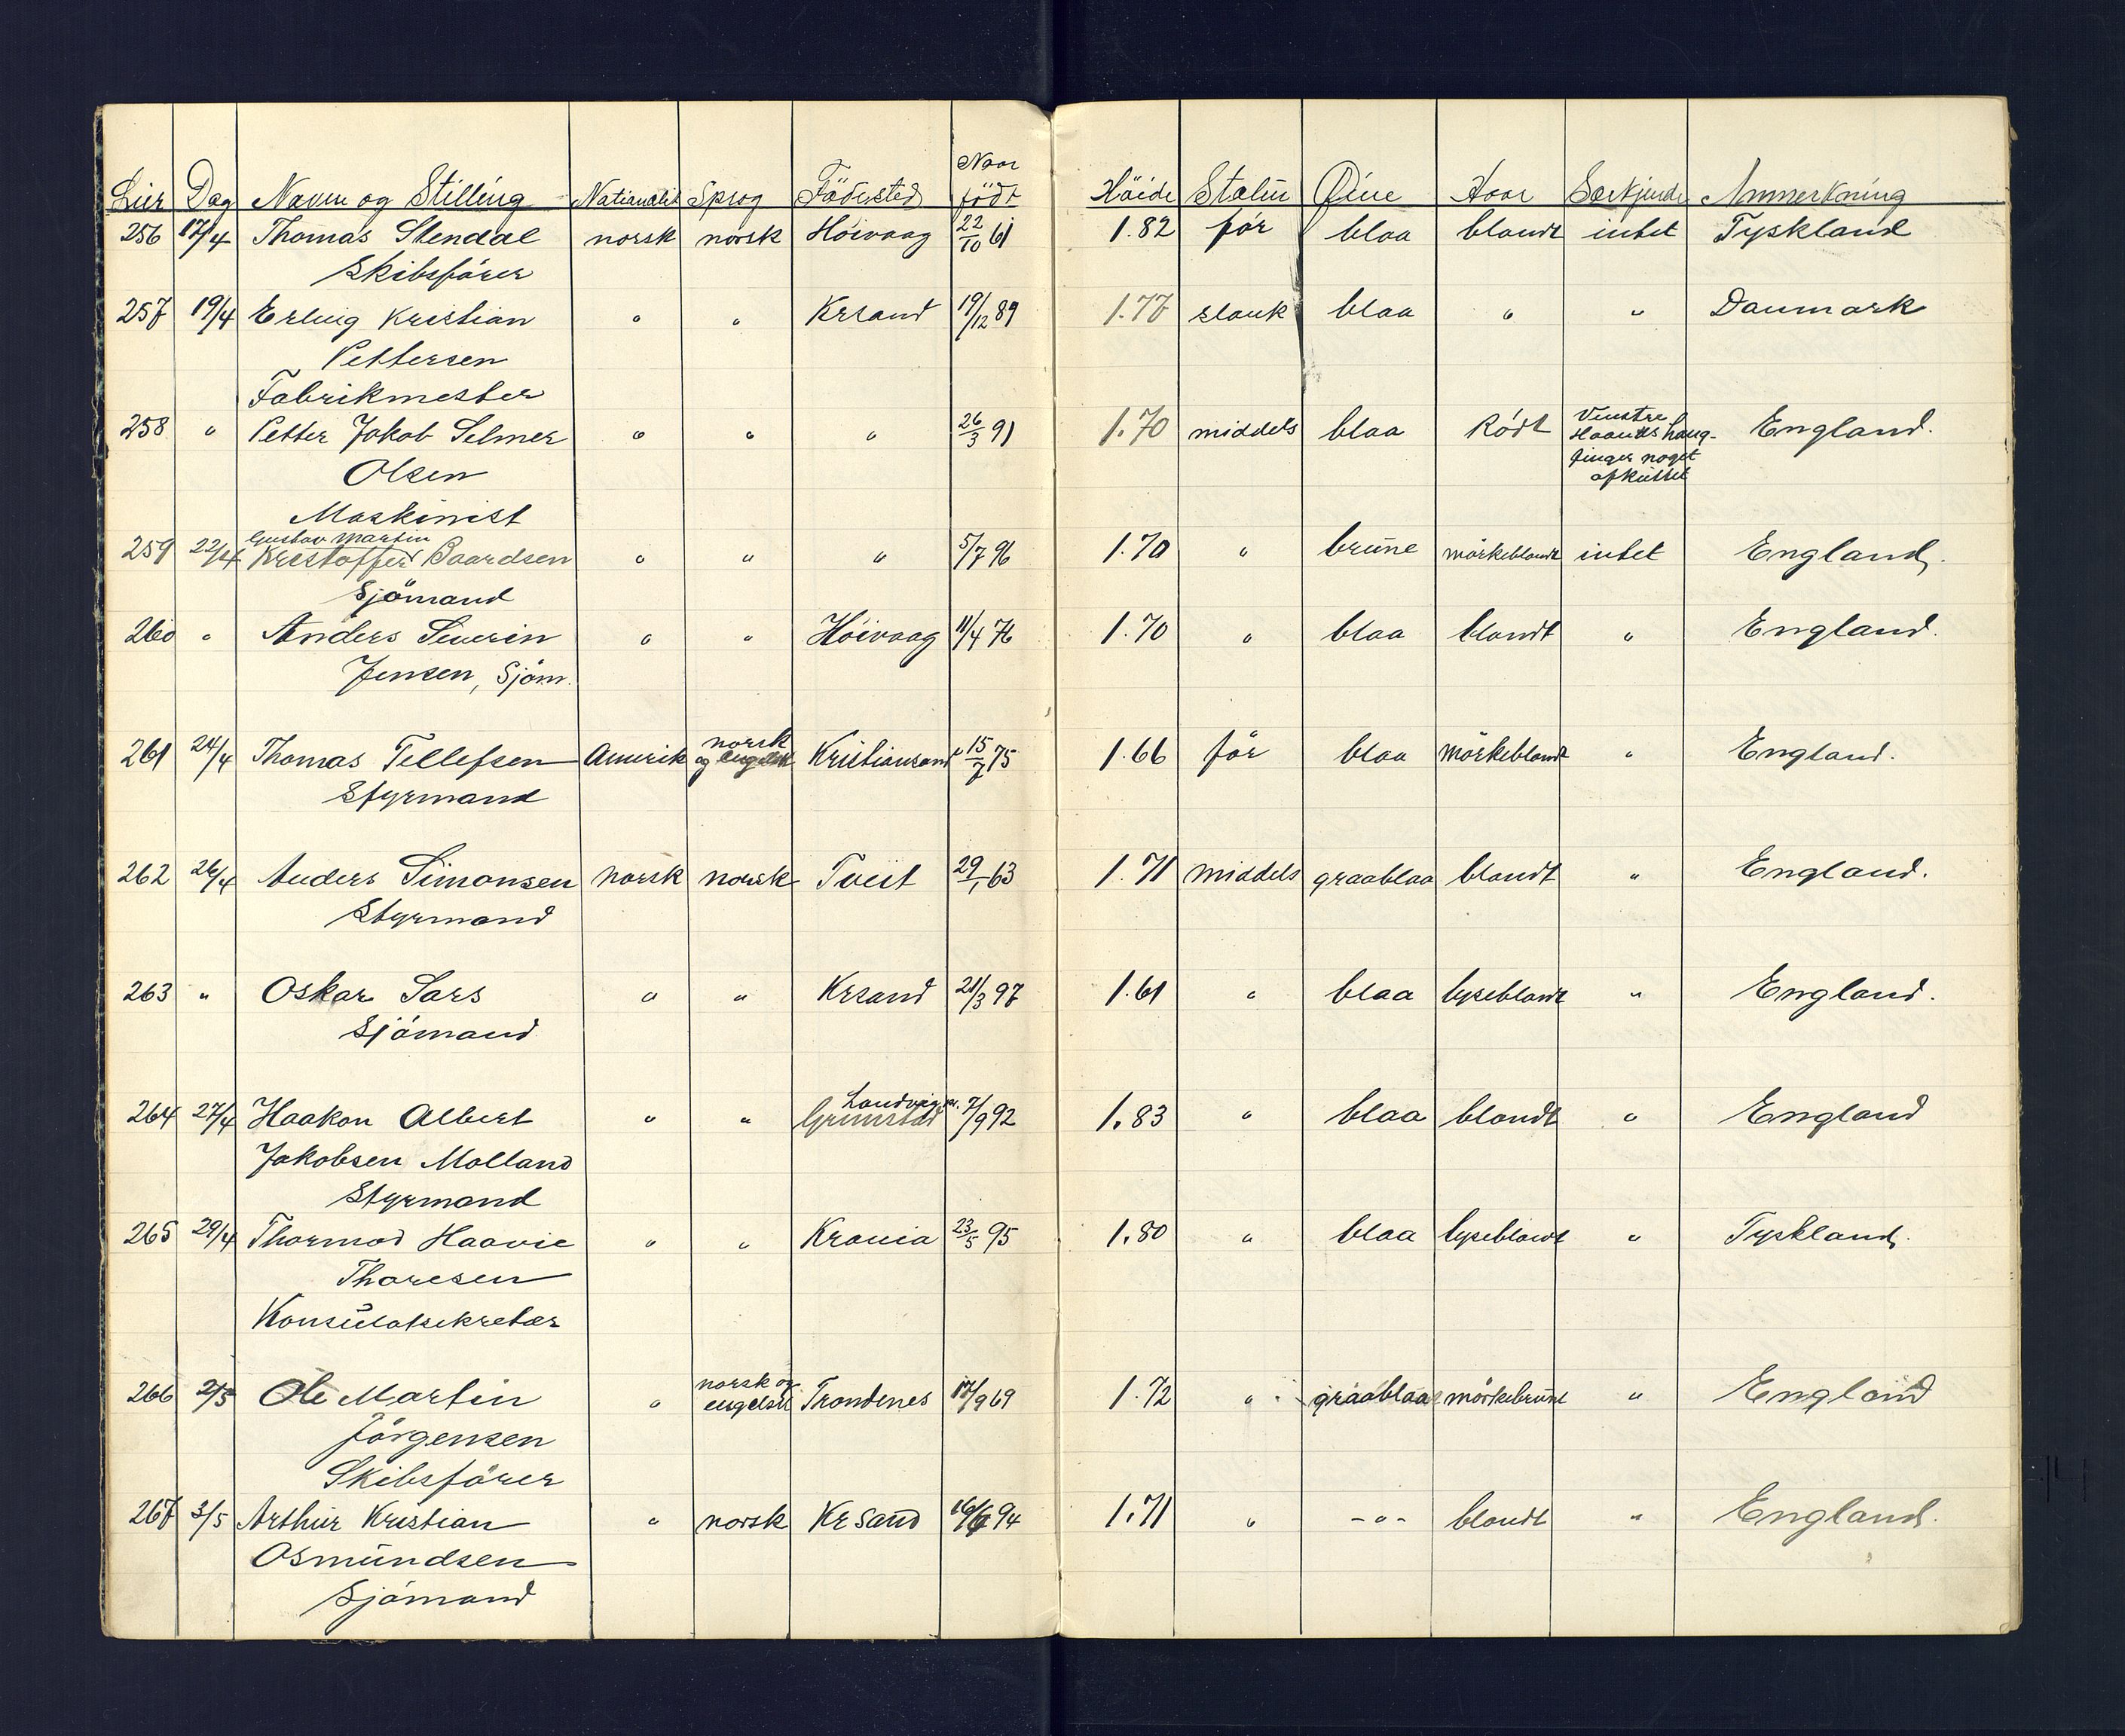 Naar
Liér Dag Navn og Stilling Nationalit Sprog Födested födt Höide Statur Öine Haar Særkjende Anmerkning
256 17/4 Thomas Stendal norsk norsk Höivaag 22/10 61 1.82 för blaa blondt intet Tyskland
Skibsförer
257 19/4 Erling Kristian " " Krsand 19/12 89 1.77 slank blaa " " Danmark
Pettersen
Fabrikmester
258 " Petter Jakob Selmer " " " 26/3 91 1.70 middels blaa Rödt Venstre Haands lang- finger noget afkuttet England.
Olsen
Maskinist
Gustav Martin
259 22/4 Kristoffer Baardsen " " " 5/7 96 1.70 " brune mörkeblondt intet England.
Sjömand
260 " Anders Severin " " Höivaag 11/4 76 1.70 " blaa blondt " England.
Jensen, Sjöm.
261 24/4 Thomas Tellefsen Amerik norsk og engelsk Kristiansand 15/7 75 1.66 för blaa mörkeblondt " England.
Styrmand
262 26/4 Anders Simonsen norsk norsk Tveit 29/1 63 1.71 middels graablaa blondt " England.
Styrmand
263 " Oskar Sars " " Krsand 21/3 97 1.61 " blaa lyseblondt " England.
Sjömand
264 27/4 Haakon Albert " " Landvig pr. Grimstad 7/9 92 1.83 " blaa blondt " England
Jakobsen Molland
Styrmand
265 29/4 Thormod Haavie " " Krania 23/5 95 1.80 " blaa lyseblondt " Tyskland.
Thoresen
Konsulatsekretær
266 2/5 Ole Martin " norsk og engelsk Trondenes 17/9 69 1.72 " graablaa mörkebrunt " England
Jörgensen
Skibsförer
267 3/5 Arthur Kristian " norsk Kr sand 16/6 94 1.71 " -"- blondt " England.
Osmundsen
Sjömand